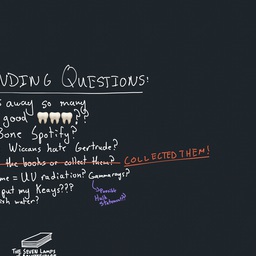 NDING QUESTIONS:
s away so many
good 🦷🦷🦷??
Bone Spotify?
Wiccans hate Gertrude?
the books or collect them? COLLECTED THEM!
me = UV radiation? Gammarays?
put my Keays???
Possible
Hulk
Statement?
ish water?
THE SEVEN LAMPS